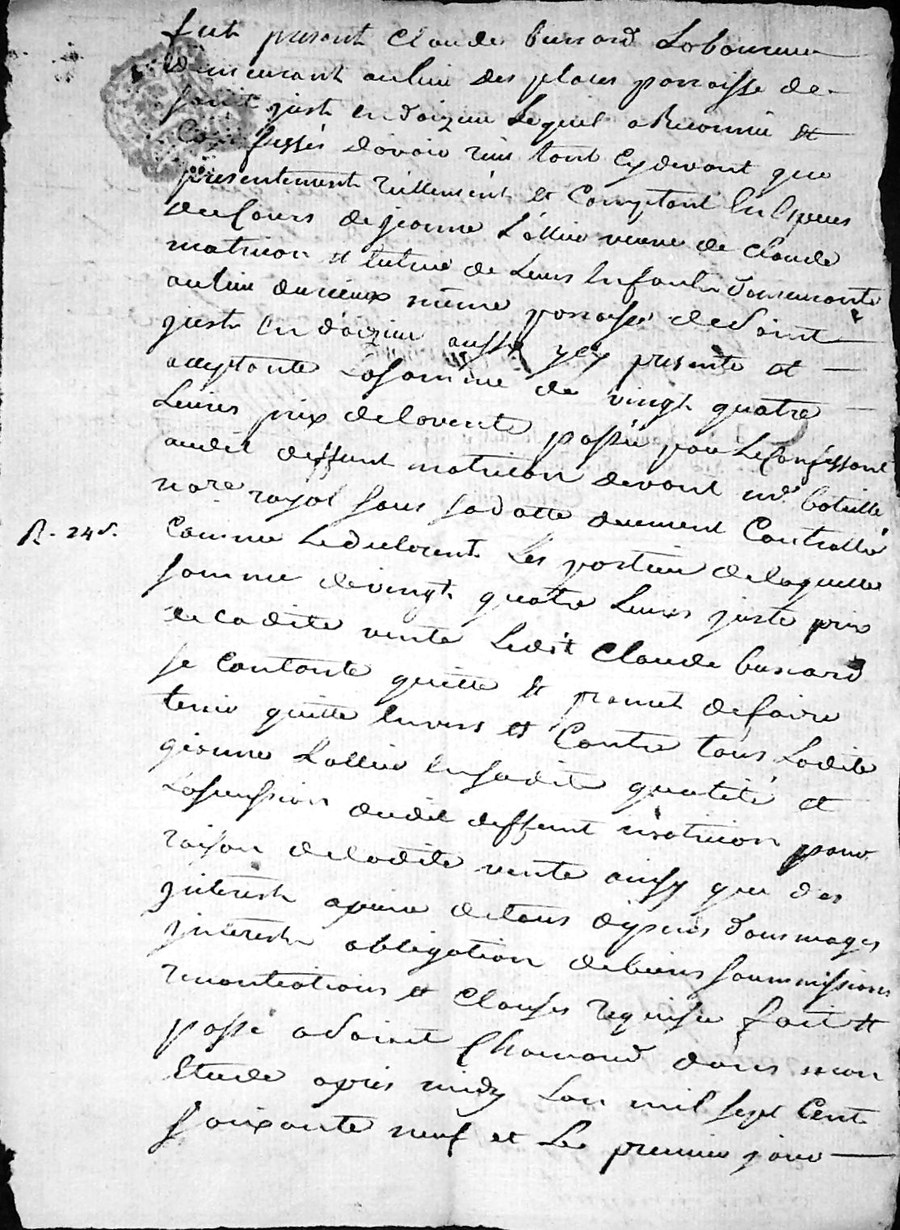 fut present Claude bussard Laboureur
demeurant au lieu des places parroisse de
saint just en doizieu Lequel a Reconnu et
Confessés d'avoir reçu tant Cydevant que
presentement reellement et Comptant En Especes
du Cours de jeanne L'allier veuve de Claude
matricon et tutrice de Leurs Enfants demeurante
au lieu du même parroisse de saint
just En doizieu aussy ycy presente et
acceptante La somme de vingt quatre
Livres prix de la vente passée par Le Confessant
audit deffunt matricon devant me
nore royal sous sa datte duement Controllé
R. 24 s.
Comme Le declarent Les parties de laquelle
somme de vingt quatre Livres juste prix
de Ladite vente Ledit Claude bussard
se Contante quitte et promet de faire
tenir quitte Envers et Contre tous Ladite
jeanne L'allier En sadite qualité et
La sucession dudit deffunt matricon pour
raison de ladite vente ainsy que des
jnterests apeine de tous depens dommages
jnterests obligation de biens soummissions
renontiations et Clauses requises fait et
passé a saint Chamond dans mon
Etude apres midy L'an mil sept Cent
soixante neuf et Le premier jour